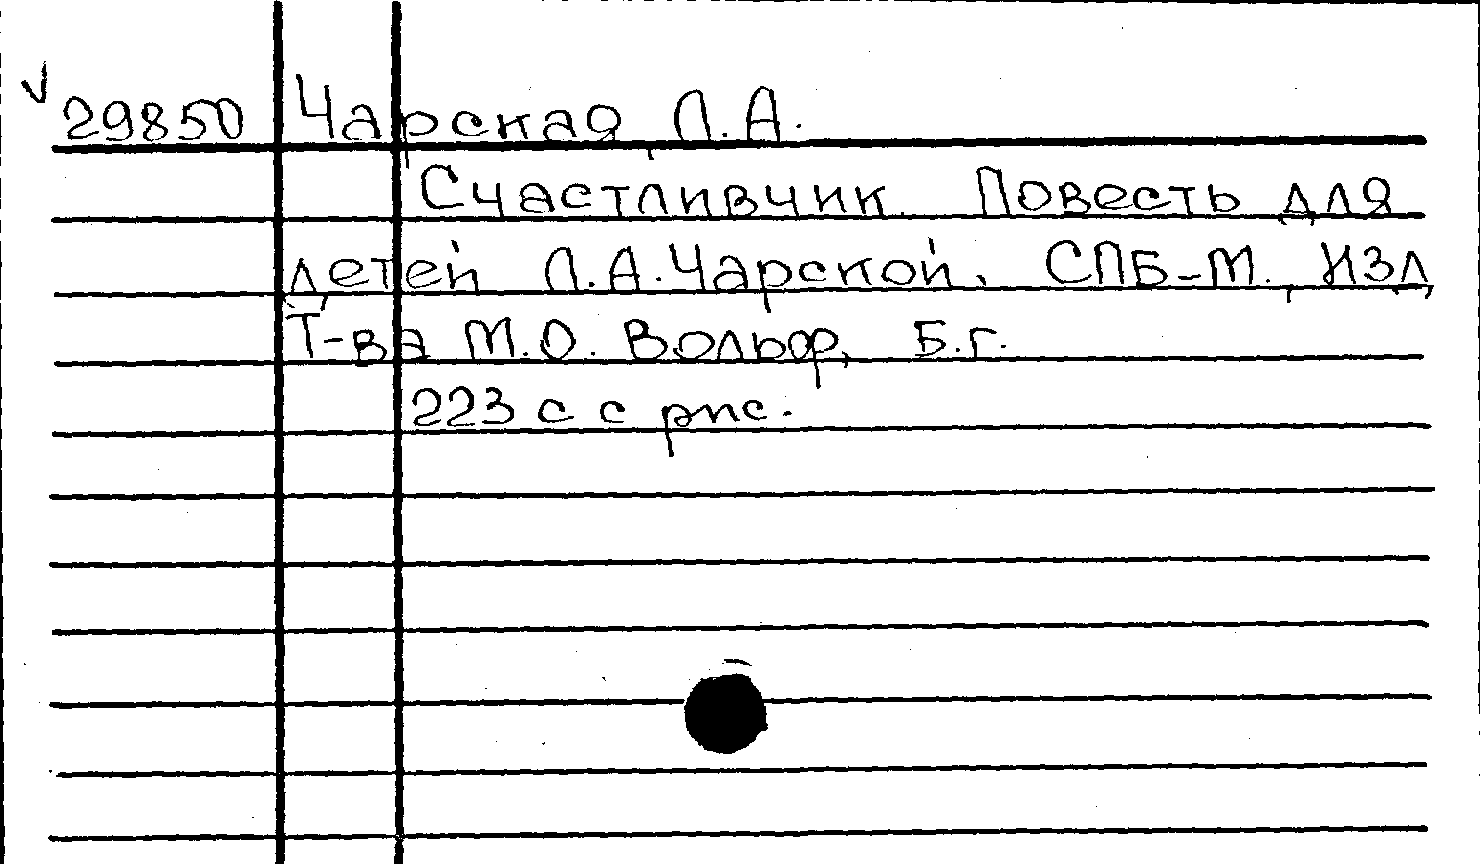 29850 Чарская, Л.А.
Счастливчик. Повесть для
детей Л.А.Чарской. СПБ-М., ИЗД,
Т-ва М.О. Вольф, Б.г.
223 с с рис.